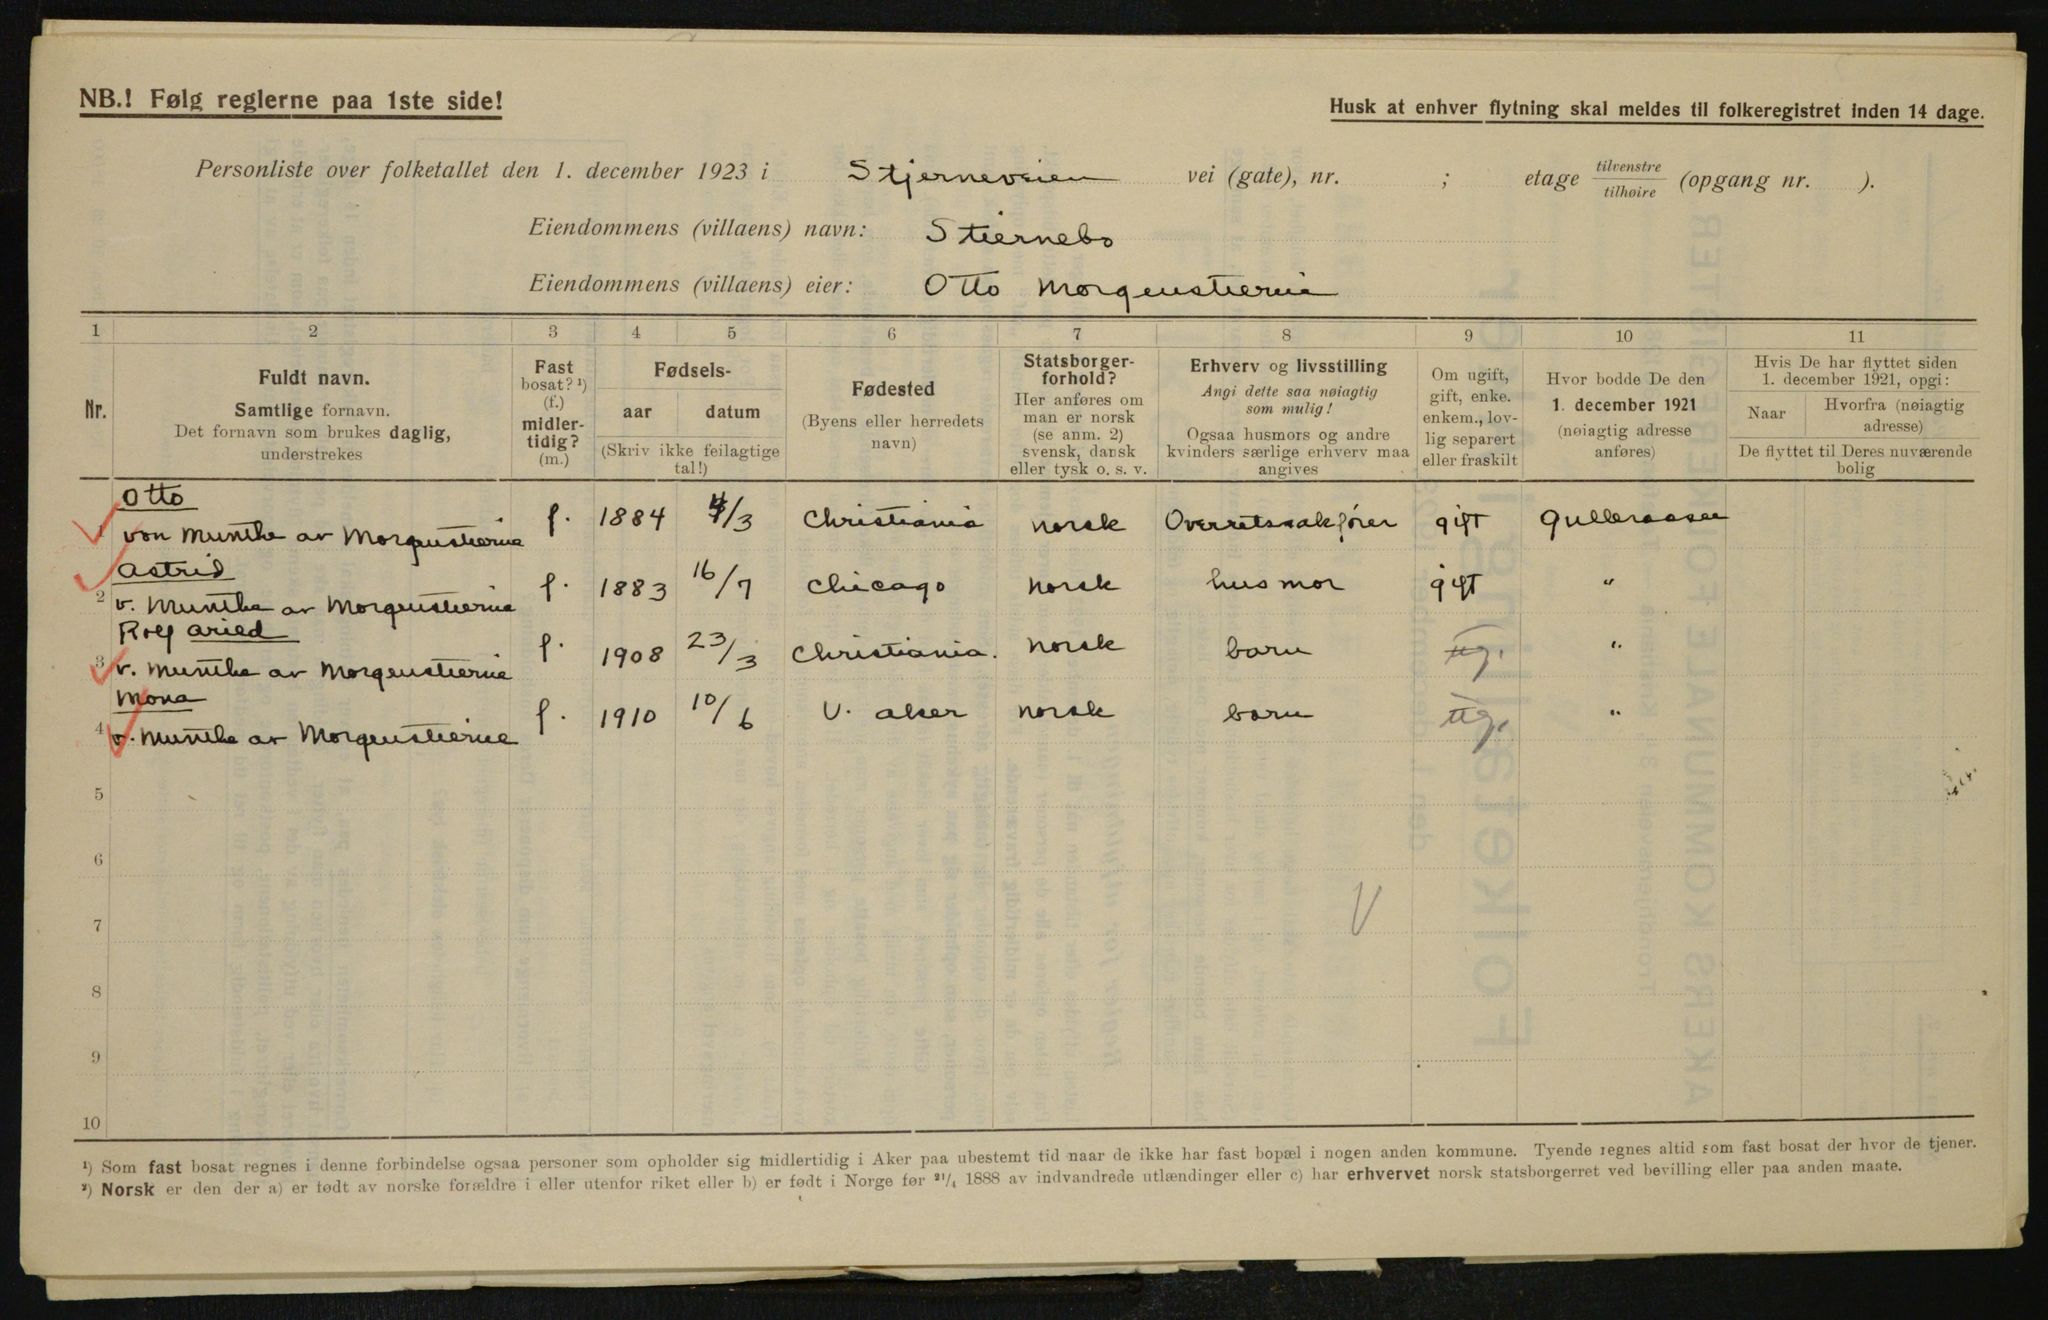 NB.! Følg reglerne paa 1ste side!
Husk at enhver flytning skal meldes til folkeregistret inden 14 dage.
Personliste over folketallet den 1. december 1923 i Stjerneveien vei (gate), nr. ; etage tilvenstre tilhøire (opgang nr. ).
Eiendommens (villaens) navn: Stiernebo
Eiendommens (villaens) eier: Otto Morgenstierne
1 2 3 4 5 6 7 8 9 10 11
Nr.
Fuldt navn.
Samtlige fornavn.
Det fornavn som brukes daglig,
understrekes
Fast
bosat? ¹)
(f.)
midler-
tidig?
(m.)
Fødsels-
aar datum
(Skriv ikke feilagtige
tal!)
Fødested
(Byens eller herredets
navn)
Statsborger-
forhold?
Her anføres om
man er norsk
(se anm. 2)
svensk, dansk
eller tysk o. s. v.
Erhverv og livsstilling
Angi dette saa nøiagtig
som mulig!
Ogsaa husmors og andre
kvinders særlige erhverv maa
angives
Om ugift,
gift, enke.
enkem., lov-
lig separert
eller fraskilt
Hvor bodde De den
1. december 1921
(nøiagtig adresse
anføres)
Hvis De har flyttet siden
1. december 1921, opgi:
Naar
Hvorfra (nøiagtig
adresse)
De flyttet til Deres nuværende
bolig
Otto
1 von Munthe av Morgenstierne f. 1884 4/3 Christiania norsk Overretssakfører gift Gulleraasen
Astrid
2 v. Munthe av Morgenstierne f. 1883 16/7 Chicago norsk husmor gift "
Rolf Arild
3 v. Munthe av Morgenstierne f. 1908 23/3 Christiania. norsk barn ug. "
Mona
4 v. Munthe av Morgenstierne f. 1910 10/6 V. Aker norsk barn ug. "
5
6
7
8
9
10
¹) Som fast bosat regnes i denne forbindelse ogsaa personer som opholder sig midlertidig i Aker paa ubestemt tid naar de ikke har fast bopæl i nogen anden kommune. Tyende regnes altid som fast bosat der hvor de tjener.
²) Norsk er den der a) er født av norske forældre i eller utenfor riket eller b) er født i Norge før 21/4 1888 av indvandrede utlændinger eller c) har erhvervet norsk statsborgerret ved bevilling eller paa anden maate.